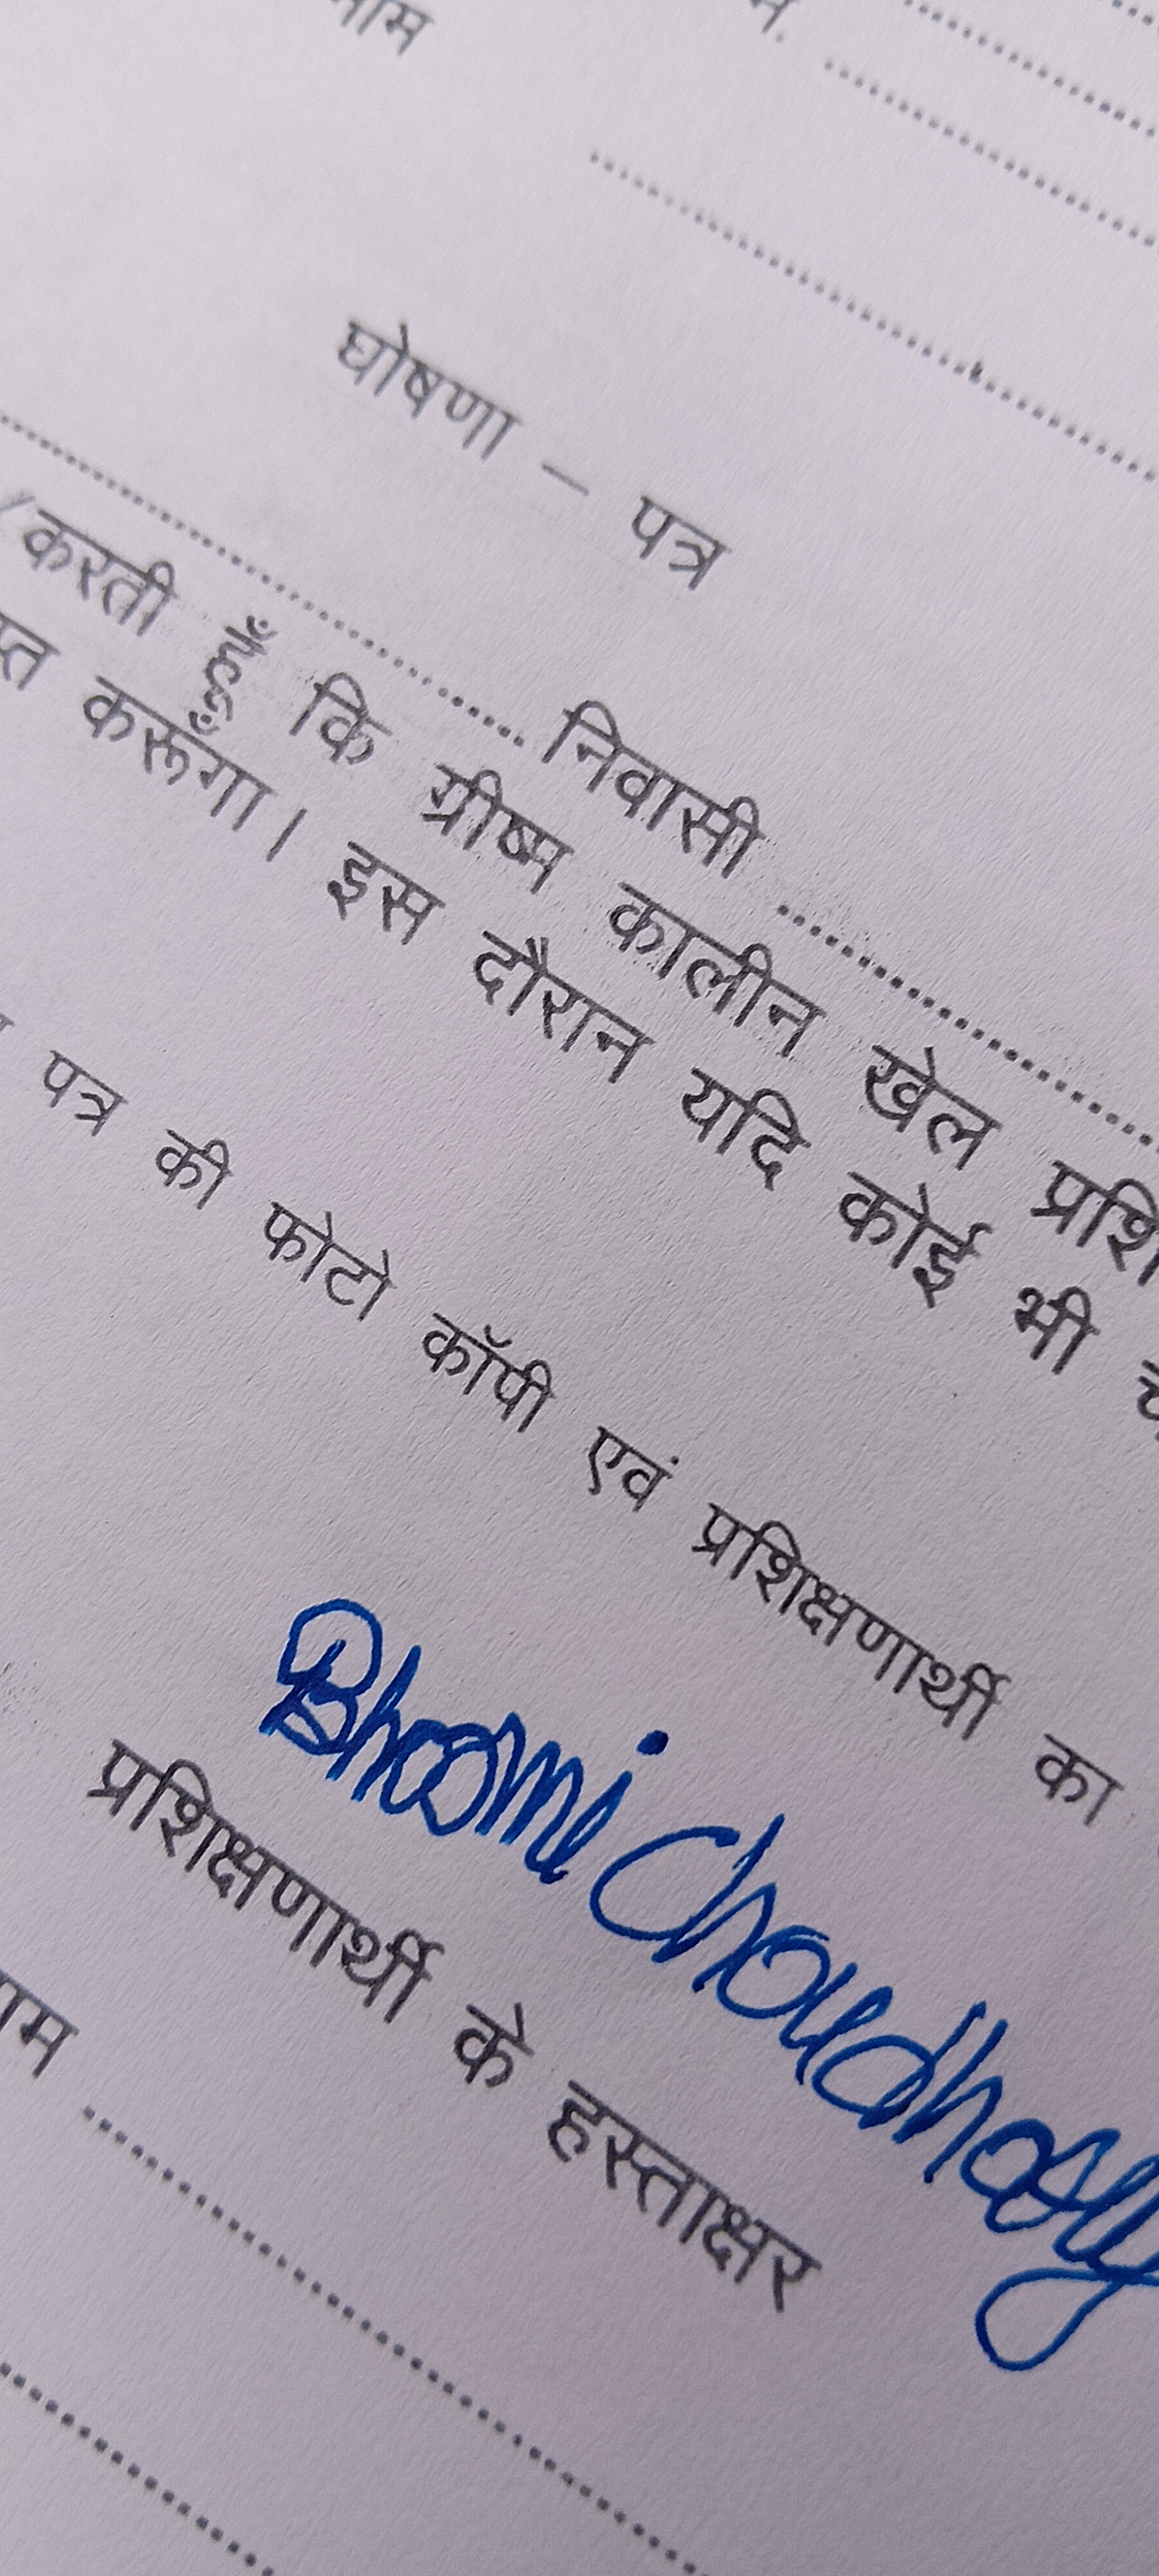 घोषणा – पत्र
.......... निवासी ..........
करती हूँ कि ग्रीष्म कालीन खेल
करूँगा। इस दौरान यदि कोई भी
पत्र की फोटो कॉपी एवं प्रशिक्षणार्थी का
Bhoomi Choudhary
प्रशिक्षणार्थी के हस्ताक्षर